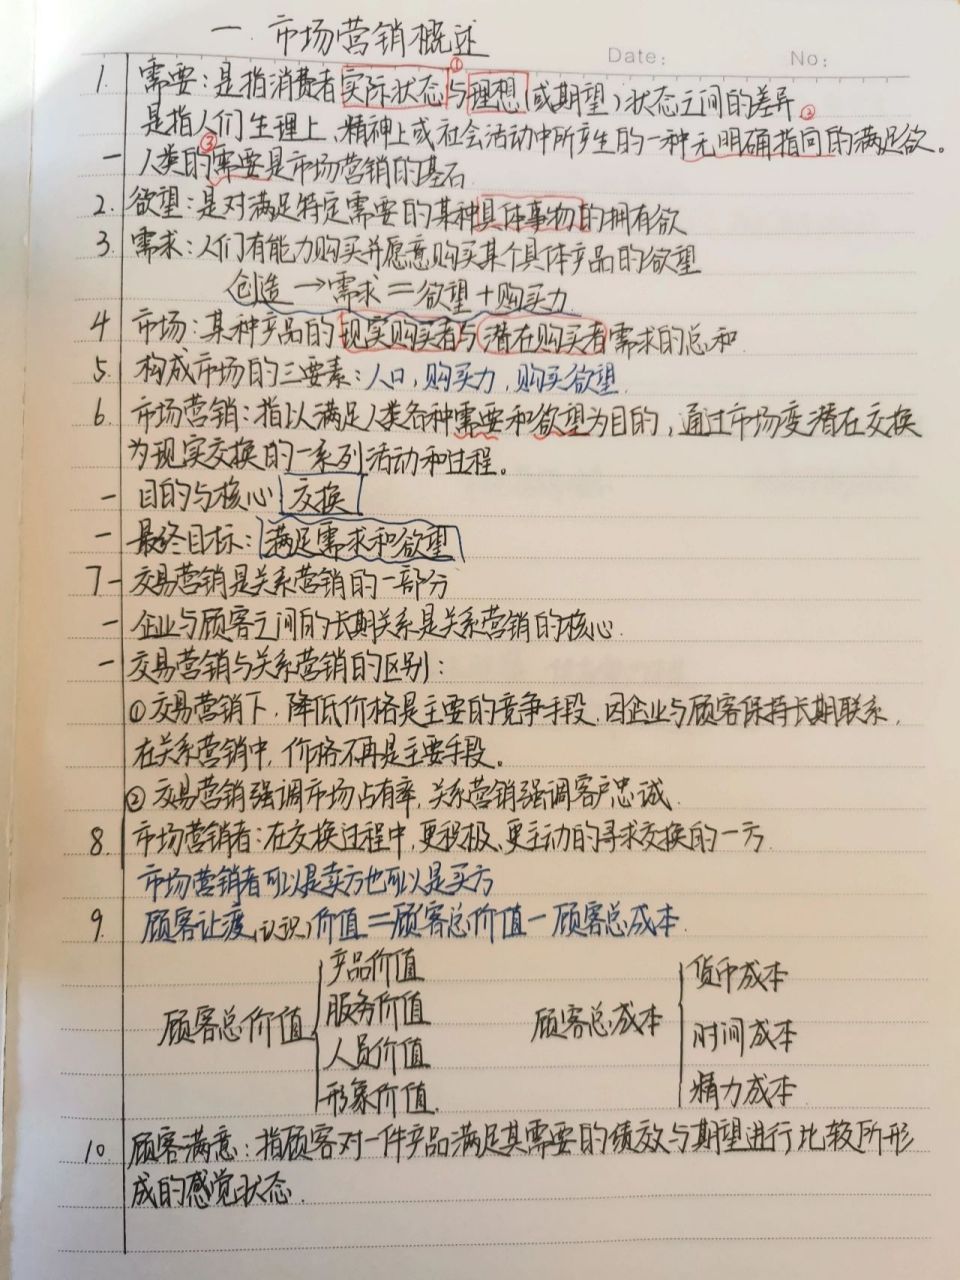 一. 市场营销概述
Date: No:
1. 需要：是指消费者实际状态与理想(或期望)状态之间的差异 ①
是指人们生理上、精神上或社会活动中所产生的一种无明确指向的满足欲。②
- 人类的需要是市场营销的基石 ③
2. 欲望：是对满足特定需要的某种具体事物的拥有欲
3. 需求：人们有能力购买并愿意购买某个具体产品的欲望
创造→需求=欲望+购买力
4 市场：某种产品的现实购买者与潜在购买者需求的总和
5. 构成市场的三要素：人口，购买力，购买欲望
6. 市场营销：指以满足人类各种需要和欲望为目的，通过市场变潜在交换
为现实交换的一系列活动和过程。
- 目的与核心 交换
- 最终目标：满足需求和欲望
7 - 交易营销是关系营销的一部分
- 企业与顾客之间的长期关系是关系营销的核心.
- 交易营销与关系营销的区别：
①交易营销下，降低价格是主要的竞争手段，因企业与顾客保持长期联系，
在关系营销中，价格不再是主要手段。
②交易营销强调市场占有率，关系营销强调客户忠诚
8. 市场营销者：在交换过程中，更积极、更主动的寻求交换的一方
市场营销者可以是卖方也可以是买方
9. 顾客让渡(认识)价值=顾客总价值-顾客总成本
顾客总价值 产品价值
服务价值
人员价值
形象价值
顾客总成本 货币成本
时间成本
精力成本
10. 顾客满意：指顾客对一件产品满足其需要的绩效与期望进行比较所形
成的感觉状态.